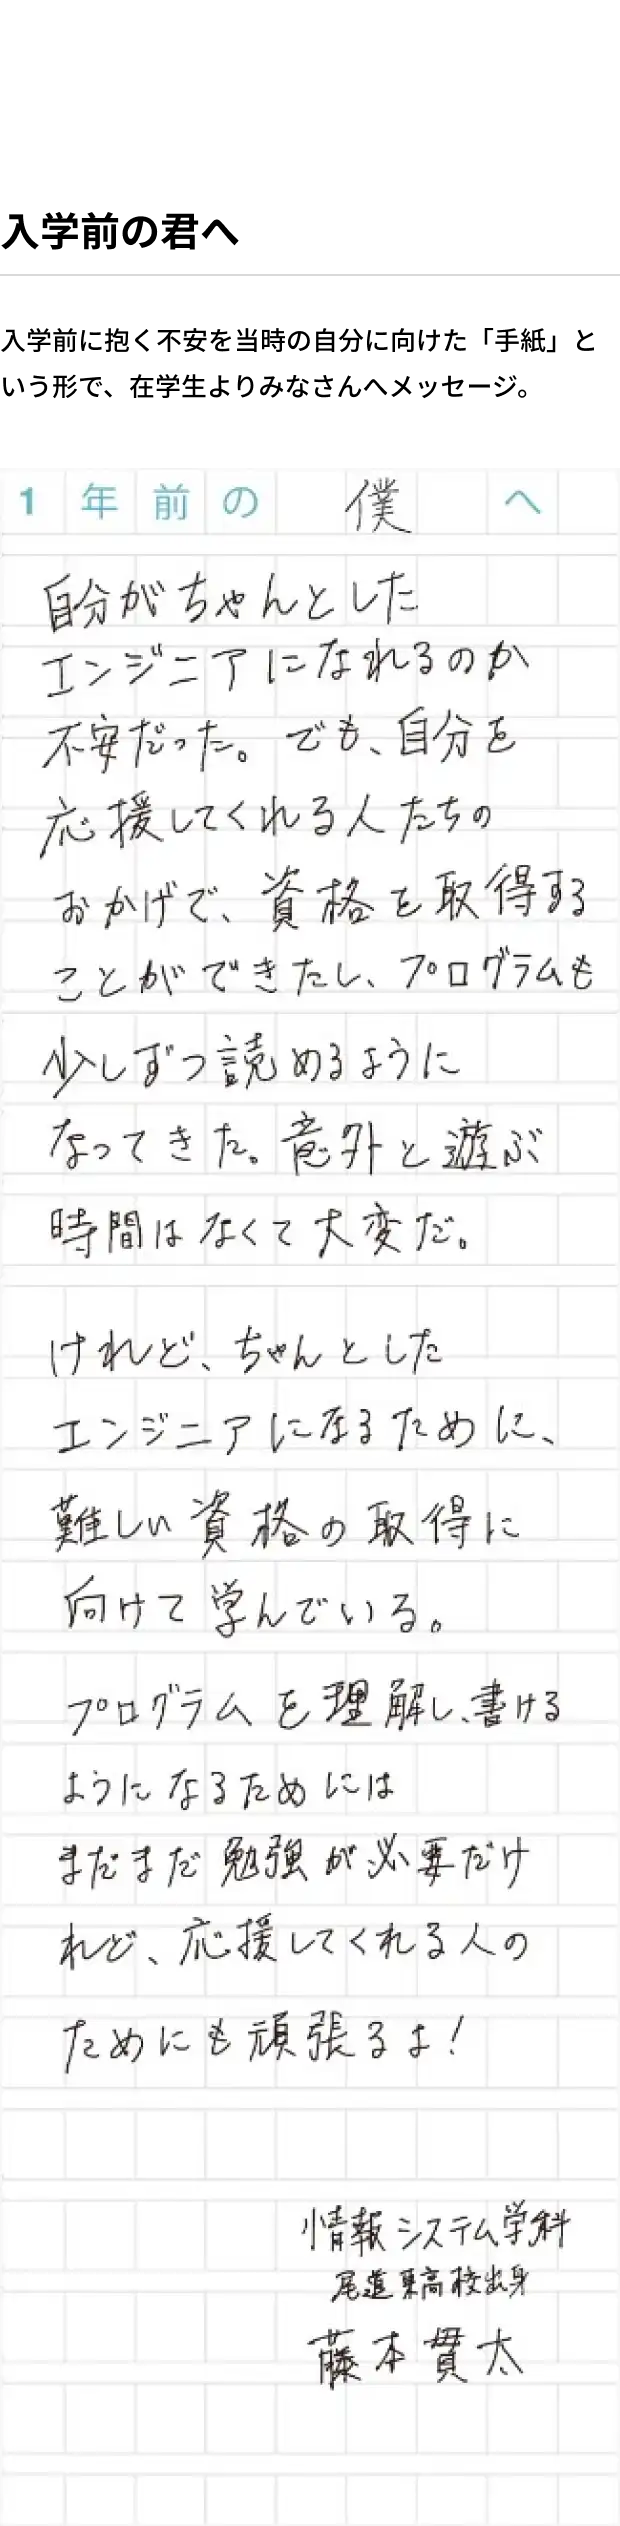 入学前の君へ
入学前に抱く不安を当時の自分に向けた「手紙」と
いう形で、在学生よりみなさんへメッセージ。
1年前の 僕 へ
自分がちゃんとした
エンジニアになれるのか
不安だった。でも、自分を
応援してくれる人たちの
おかげで、資格を取得する
ことができたし、プログラムも
少しずつ読めるように
なってきた。意外と遊ぶ
時間はなくて大変だ。
けれど、ちゃんとした
エンジニアになるために、
難しい資格の取得に
向けて学んでいる。
プログラムを理解し、書ける
ようになるためには
まだまだ勉強が必要だけ
れど、応援してくれる人の
ためにも頑張るよ!
情報システム学科
尾道東高校出身
藤本貫太